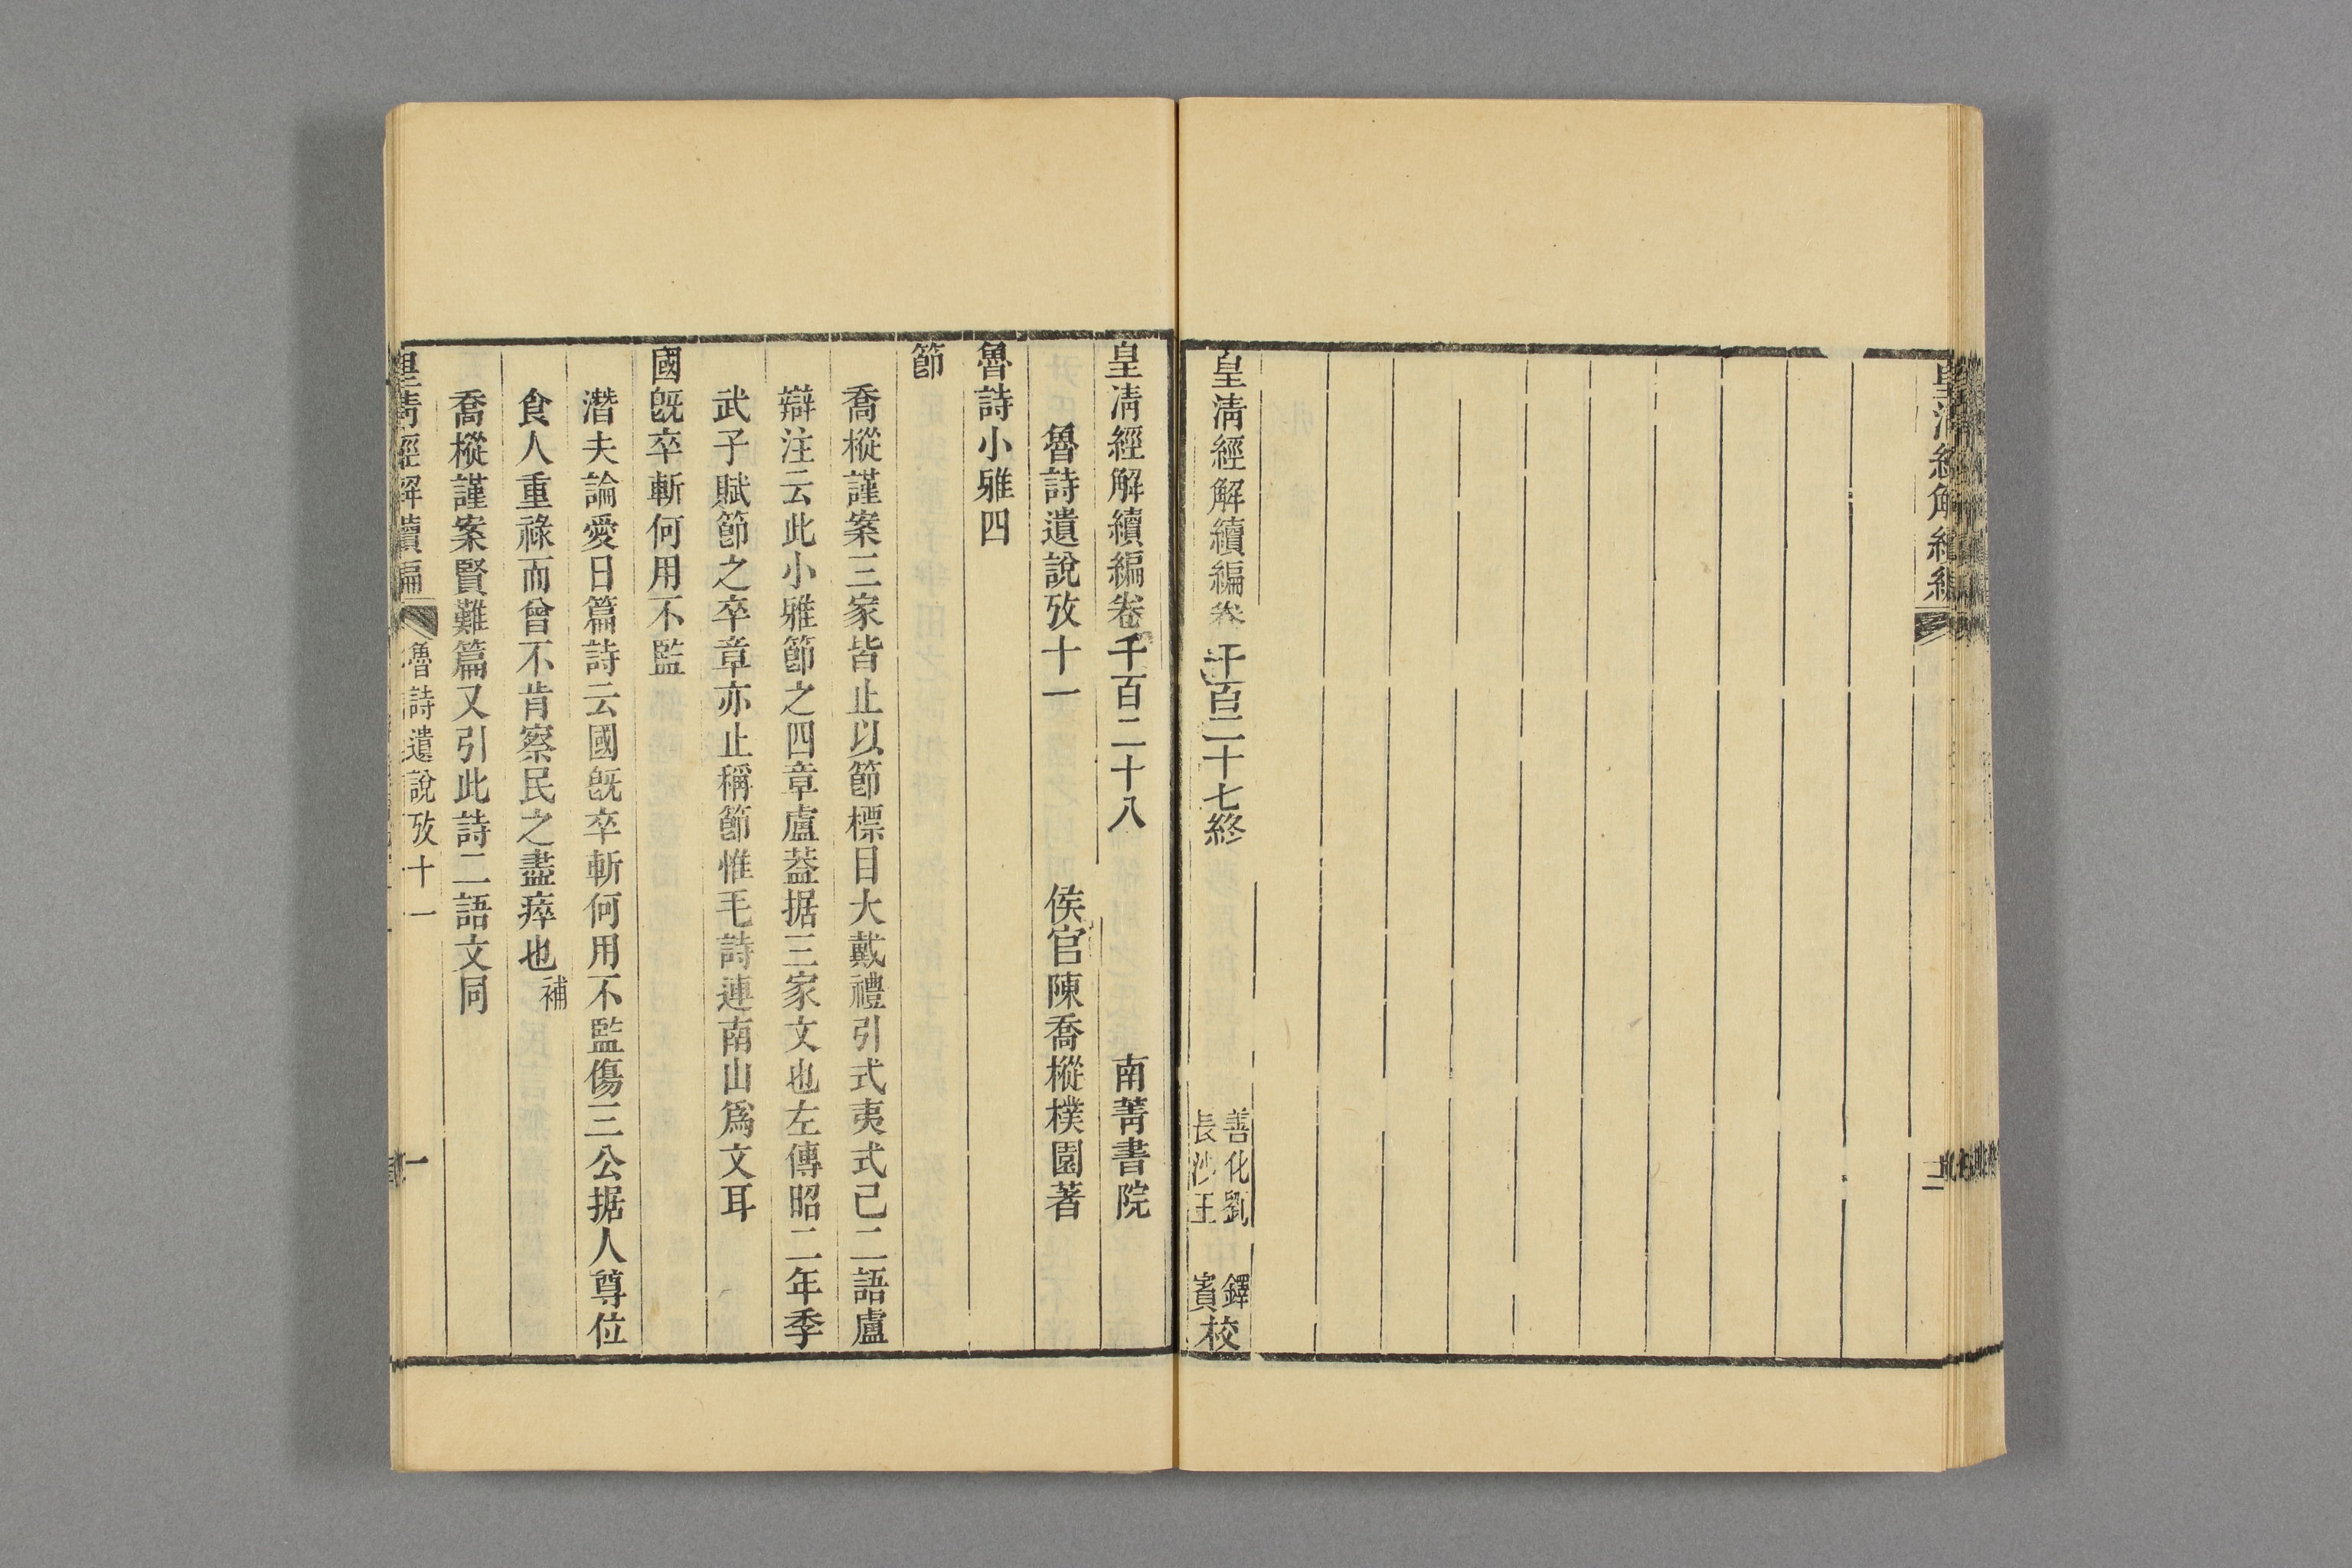 皇清經解續編
二
皇清經解續編卷千百二十七終
善化劉鐸
長沙王賓校
皇清經解續編卷千百二十八 南菁書院
魯詩遺說攷十一 侯官陳喬樅樸園著
魯詩小雅四
節
喬樅謹案三家皆止以節標目大戴禮引式夷式己二語盧
辯注云此小雅節之四章盧葢据三家文也左傳昭二年季
武子賦節之卒章亦止稱節惟毛詩連南山爲文耳
國旣卒斬何用不監
潛夫論愛日篇詩云國旣卒斬何用不監傷三公据人尊位
食人重祿而曾不肯察民之盡瘁也補
喬樅謹案賢難篇又引此詩二語文同
皇清經解續編 魯詩遺說攷十一 一